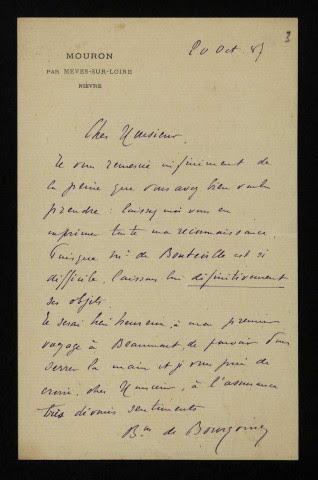 3
MOURON
PAR MEVES-SUR-LOIRE
NIÈVRE
20 Oct 87
Cher Monsieur
Je vous remercie infiniment de
la peine que vous avez bien voulu
prendre : laissez moi vous en
exprimer toute ma reconnaissance.
Puisque Mr de Bouteville est si
difficile, laissons lui définitivement
ses objets.
Je serai très heureux, à mon premier
voyage à Beaumont de pouvoir vous
serrer la main et je vous prie de
croire, cher Monsieur, à l'assurance
très dévoués sentiments
Bon de Bourgoing